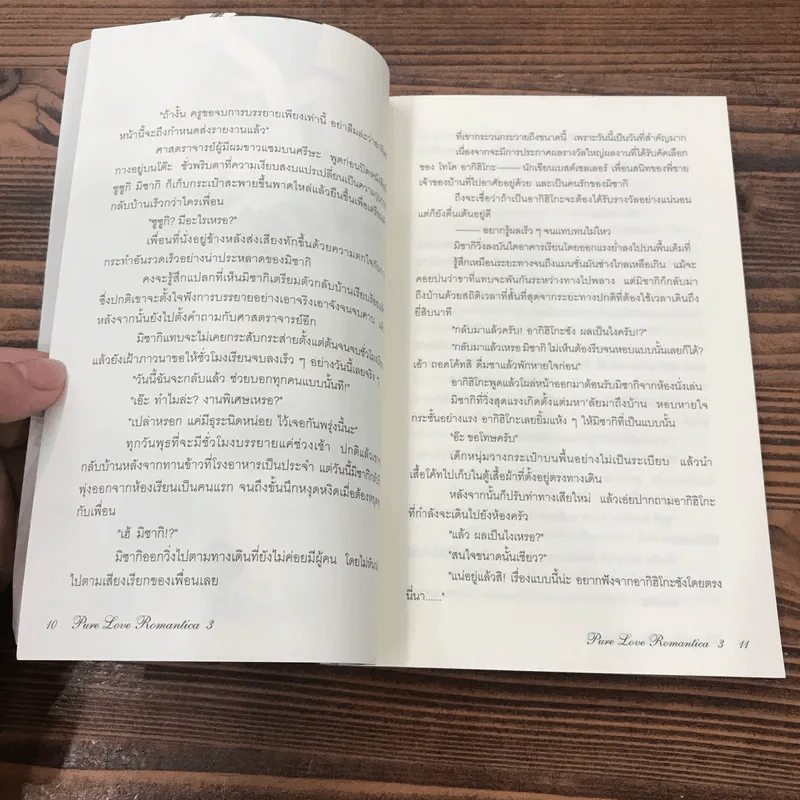 "ถ้างั้น ครูขอจบการบรรยายเพียงเท่านี้ อย่าลืมล่ะว่าอาทิตย์
หน้านี้จะถึงกำหนดส่งรายงานแล้ว"
ศาสตราจารย์ผู้มีผมขาวแซมบนศรีษะ พูดก่อนปิดหนังสือที่
กางอยู่บนโต๊ะ ชั่วพริบตาที่ความเงียบสงบแปรเปลี่ยนเป็นความวุ่นวาย
ซูซูกิ มิซากิ ก็เก็บกระเป๋าสะพายขึ้นพาดไหล่แล้วยืนขึ้นเพื่อเตรียมตัว
กลับบ้านเร็วกว่าใครเพื่อน
"ซูซูกิ? มีอะไรเหรอ?"
เพื่อนที่นั่งอยู่ข้างหลังส่งเสียงทักขึ้นด้วยความตกใจกับการ
กระทำอันรวดเร็วอย่างน่าประหลาดของมิซากิ
คงจะรู้สึกแปลกที่เห็นมิซากิเตรียมตัวกลับบ้านเรียบร้อยแล้ว
ซึ่งปกติเขาจะตั้งใจฟังการบรรยายอย่างเอาจริงเอาจังจนจบคาบ แล้ว
หลังจากนั้นยังไปตั้งคำถามกับศาสตราจารย์อีก
มิซากิแทบจะไม่เคยกระสับกระส่ายตั้งแต่ต้นจนจบชั่วโมงเรียน
แล้วยังเฝ้าภาวนาขอให้ชั่วโมงเรียนจบลงเร็ว ๆ อย่างวันนี้เลยจริง ๆ
"วันนี้ฉันจะกลับแล้ว ช่วยบอกทุกคนแบบนั้นที!"
"เอ๊ะ ทำไมล่ะ? งานพิเศษเหรอ?"
"เปล่าหรอก แค่มีธุระนิดหน่อย ไว้เจอกันพรุ่งนี้นะ"
ทุกวันพุธที่จะมีชั่วโมงบรรยายแค่ช่วงเช้า ปกติแล้วเขาจะ
กลับบ้านหลังจากทานข้าวที่โรงอาหารเป็นประจำ แต่วันนี้มิซากิกลับ
พุ่งออกจากห้องเรียนเป็นคนแรก จนถึงขั้นนึกหงุดหงิดเมื่อต้องหยุดคุย
กับเพื่อน
"เฮ้ มิซากิ!?"
มิซากิออกวิ่งไปตามทางเดินที่ยังไม่ค่อยมีผู้คน โดยไม่หัน
ไปตามเสียงเรียกของเพื่อนเลย
10 Pure Love Romantica 3
ที่เขากระวนกระวายถึงขนาดนี้ เพราะวันนี้เป็นวันที่สำคัญมาก
เนื่องจากจะมีการประกาศผลรางวัลใหญ่ผลงานที่ได้รับคัดเลือก
ของ โทโด อากิฮิโกะ —— นักเขียนเบสต์เซลเลอร์ เพื่อนสนิทของพี่ชาย
เจ้าของบ้านที่ไปอาศัยอยู่ด้วย และเป็นคนรักของมิซากิ
ถึงจะเชื่อว่าถ้าเป็นอากิฮิโกะจะต้องได้รับรางวัลอย่างแน่นอน
แต่ก็ยังตื่นเต้นอยู่ดี
—— อยากรู้ผลเร็ว ๆ จนแทบทนไม่ไหว
มิซากิวิ่งลงบันไดอาคารเรียนโดยออกแรงย่ำลงไปบนพื้นเต็มที่
รู้สึกเหมือนระยะทางจนถึงแมนชั่นมันช่างไกลเหลือเกิน แม้จะ
คอยบ่นว่าขาที่แทบจะพันกันระหว่างทางไปพลาง แต่มิซากิก็กลับมา
ถึงบ้านด้วยสถิติเวลาที่สั้นที่สุดจากระยะทางปกติที่ต้องใช้เวลาเดินถึง
ยี่สิบนาที
"กลับมาแล้วครับ! อากิฮิโกะซัง ผลเป็นไงครับ!?"
"กลับมาแล้วเหรอ มิซากิ ไม่เห็นต้องรีบจนหอบแบบนั้นเลยก็ได้?
เอ้า ถอดโค้ทสิ ดื่มชาแล้วพักหายใจก่อน"
อากิฮิโกะพูดแล้วโผล่หน้าออกมาต้อนรับมิซากิจากห้องนั่งเล่น
มิซากิที่วิ่งสุดแรงเกิดตั้งแต่มหา'ลัยมาถึงบ้าน หอบหายใจ
กระชั้นอย่างแรง อากิฮิโกะเลยยิ้มแห้ง ๆ ให้มิซากิที่เป็นแบบนั้น
"อ๊ะ ขอโทษครับ"
เด็กหนุ่มวางกระเป๋าบนพื้นอย่างไม่เป็นระเบียบ แล้วนำ
เสื้อโค้ทไปเก็บในตู้เสื้อผ้าที่ตั้งอยู่ตรงทางเดิน
หลังจากนั้นก็ปรับท่าทางเสียใหม่ แล้วเอ่ยปากถามอากิฮิโกะ
ที่กำลังจะเดินไปยังห้องครัว
"แล้ว ผลเป็นไงเหรอ?"
"สนใจขนาดนั้นเชียว?"
"แน่อยู่แล้วสิ! เรื่องแบบนี้น่ะ อยากฟังจากอากิฮิโกะซังโดยตรง
นี่นา......"
Pure Love Romantica 3 11